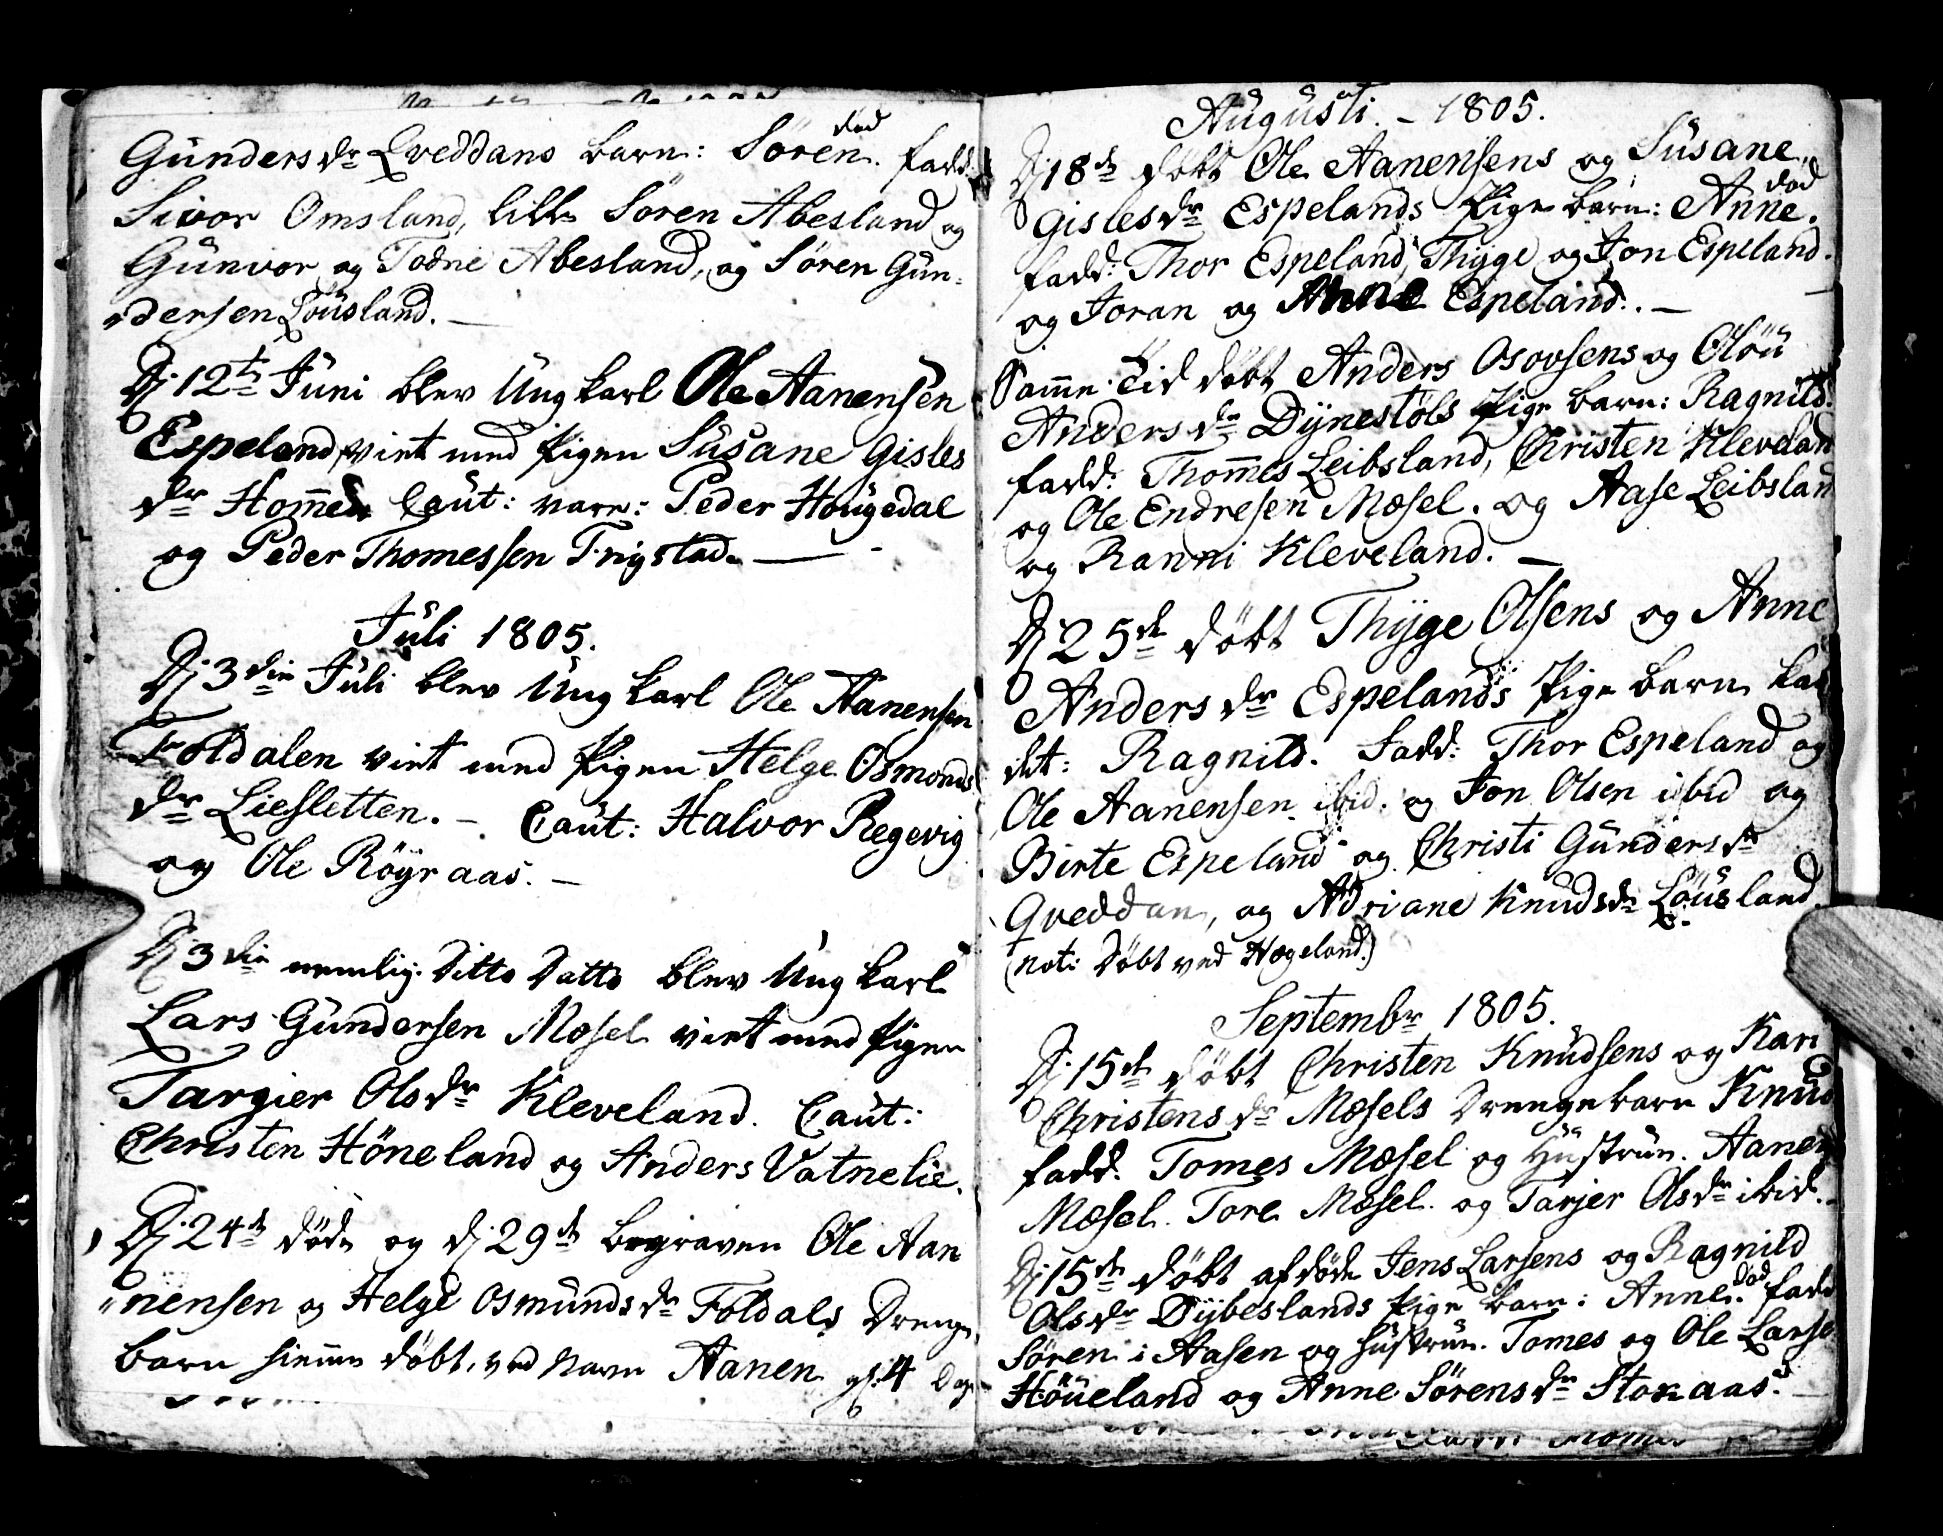 død
Gunders dr Qveddans barn: Sören. fadd:
Sivor Omsland, lille Sören Abesland og
Gunvor og Todne Abesland, og Sören Gun-
dersen Löusland. —
Dj 12te Juni blev Ung karl Ole Aanensen
Espeland, viet med Pigen Susane Gisles
dr Homme Caut: vare: Peder Hougedal
og Peder Thomessen Trigstad. —
Juli 1805.
Dj 3die Juli blev Ung karl Ole Aanensen
Foldalen viet med Pigen Helge Osmonds
dr Liesletten. – Caut: Halvor Regevig
og Ole Röyraas. —
Dj 3die nemlig Ditto Datto blev Ung karl
Lars Gundersen Mosel viet med Pigen
Targier Olsdr Kleveland. Caut:
Christen Höneland og Anders Vatnelie.
Dj 24de døde og dj 29de begraven Ole Aan
"nensen og Helge Osmundsdr Foldals Drenge
barn hiemme døbt, ved Navn Aanen gl: 4 Dage
Augusti. – 1805.
Dj 18de døbt Ole Aanensens og Susane
død
Gislesdr Espelands Pige barn: Anne.
fadd: Thor Espeland, Thyge og Jon Espeland.
og Joran og Anne Espeland. —
Samme Tid døbt Anders Osovsens og Olöu
Anders dr Dynestöls Pige barn: Ragnild.
fadd: Thommes Leibsland, Christen Klevelan
og Ole Endresen Mosel. og Aase Leibslan
og Ranni Kleveland. —
Dj 25de døbt Thyge Olsens og Anne
Anders dr Espelands Pige barn kal
det: Ragnild. Fadd: Thor Espeland og
Ole Aanensen ibid. og Jon Olsen ibid og
Birte Espeland og Christi Gundersdr
Qveddan, og Adriane Knudsdr Löusland.
(not: Døbt ved Hægeland.)
Septembr 1805.
Dj 15de døbt Christen Knudsens og Kari
Christensdr Mosels Drengebarn Knud
fadd. Tomes Mosel og Hustrue. Aanen
Mosel. Tore Mosel. og Tarjer Olsdr ibid.
Dj 15de døbt afdøde Jens Larsens og Ragnild
Olsdr Dybeslands Pige barn: Anne. død fadd
Sören i Aasen og Hustrue. Tomes og Ole Larse
Höueland og Anne Sörensdr Stokaas. —